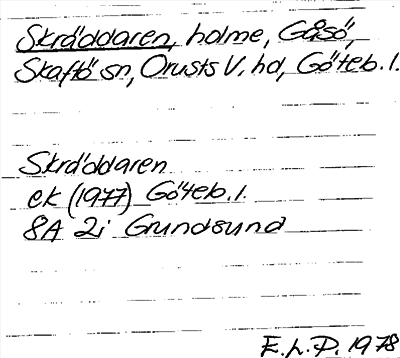 Skräddaren, holme, Gåsö,
Skaftö sn, Orusts V. hd, Göteb. l.
Skräddaren
ek (1977) Göteb. l.
8A 2i Grundsund
E.L.D. 1978